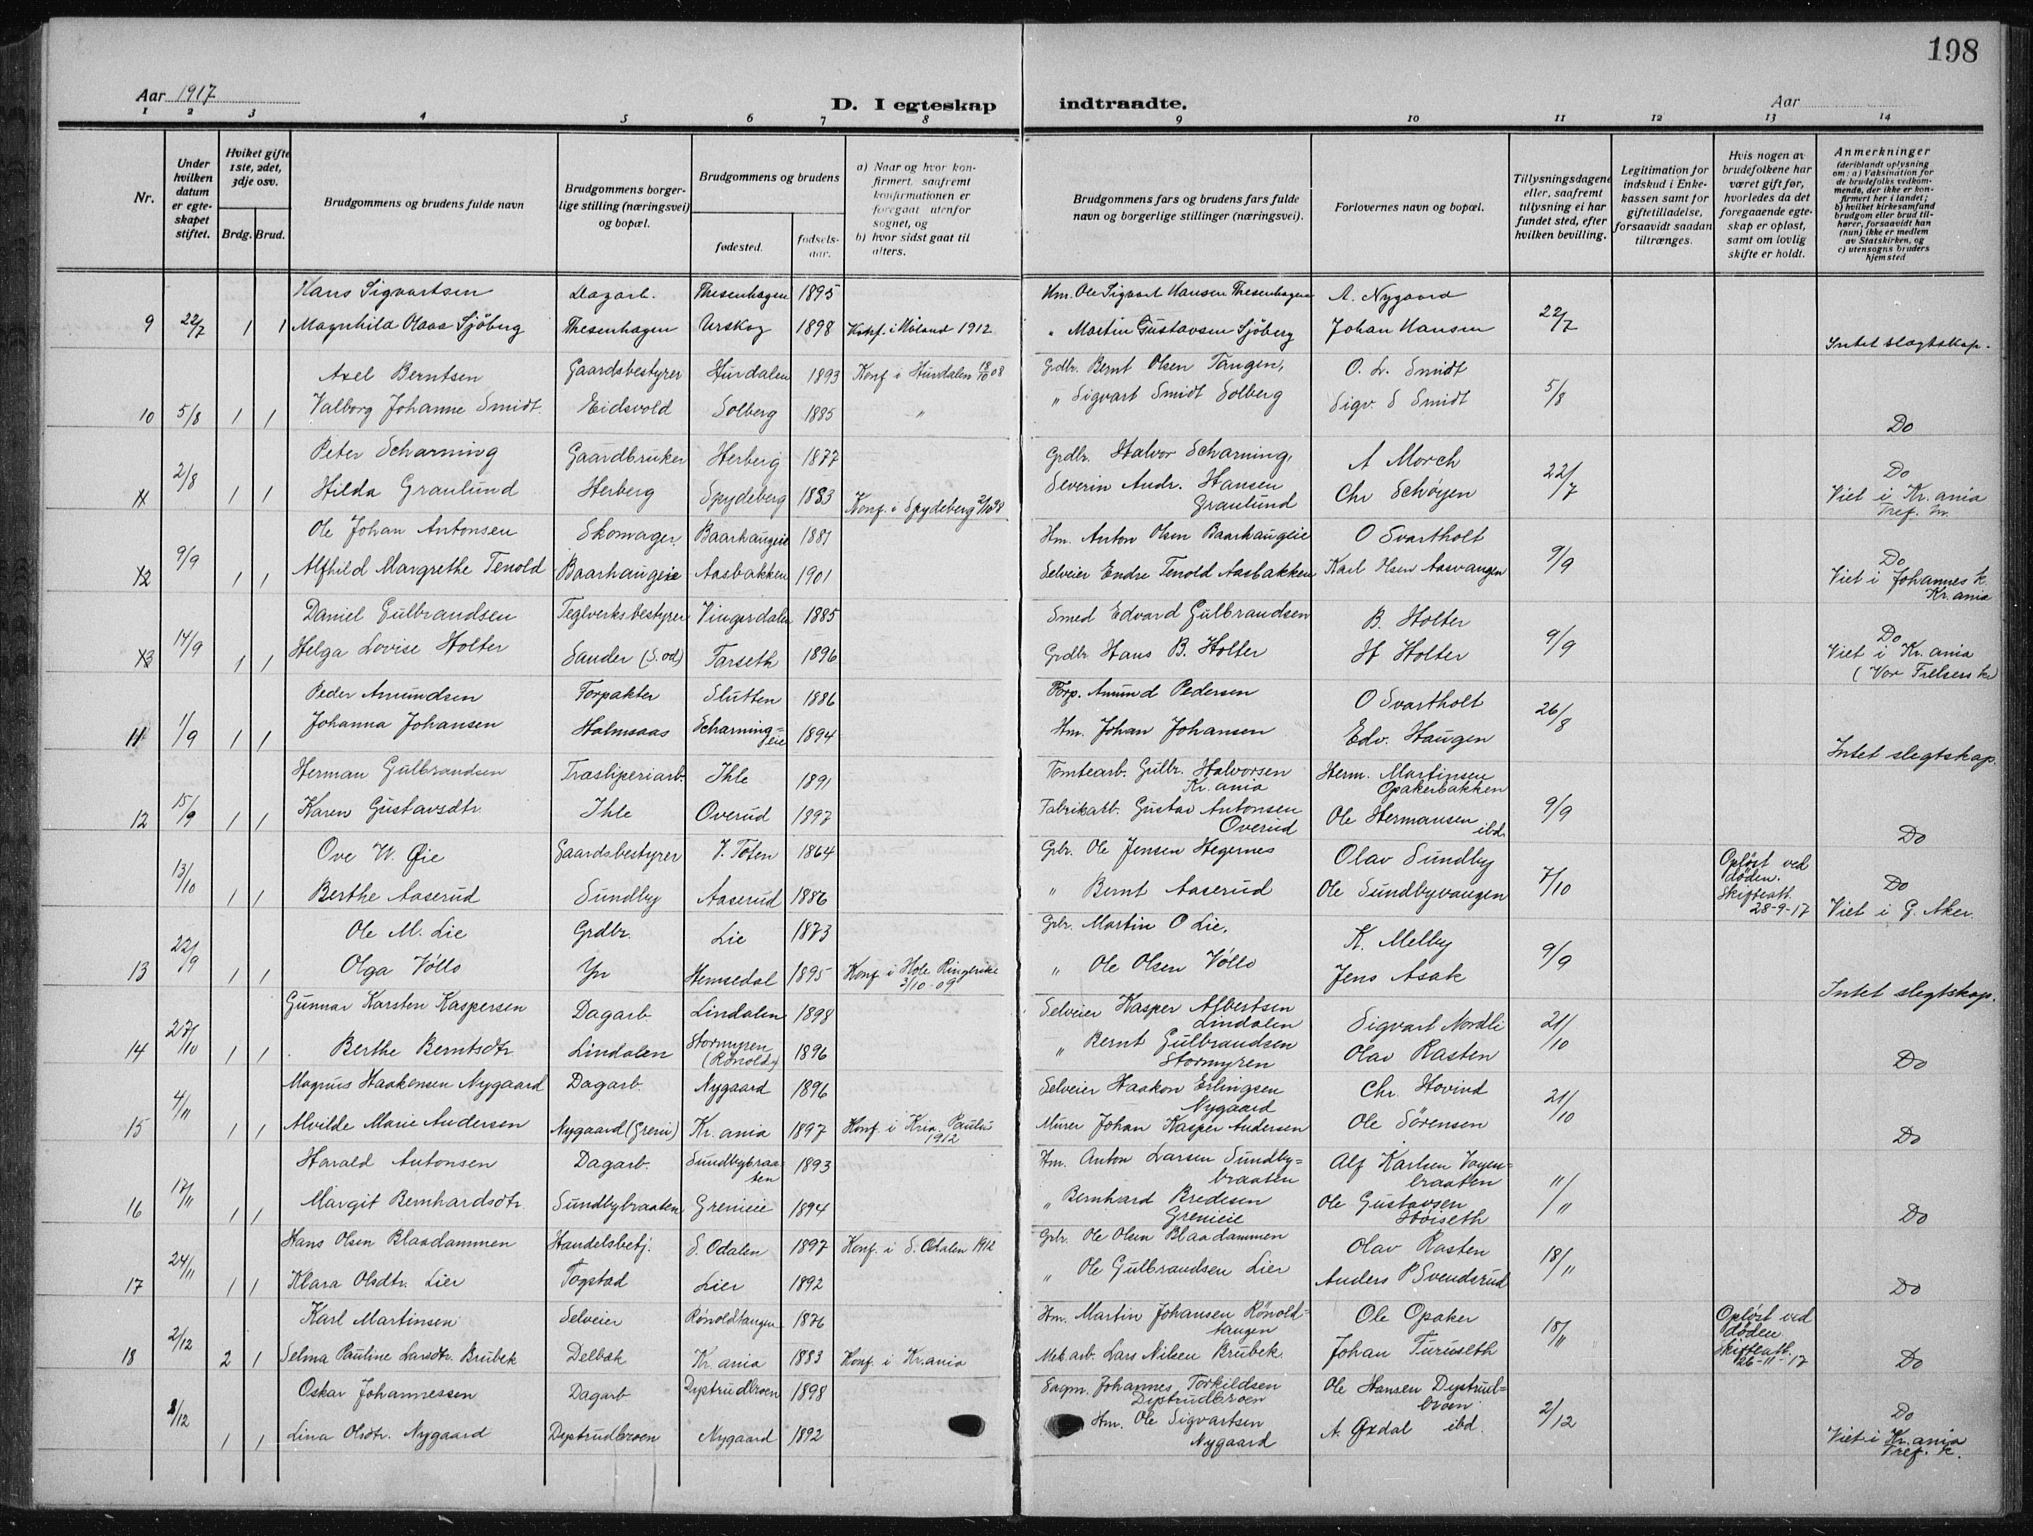 198
Aar 1917 D. I egteskap indtraadte. Aar
1 2 3 4 5 6 7 8 9 10 11 12 13 14
Nr.
Under hvilken datum er egteskapet stiftet.
Hviket gifte 1ste, 2det, 3dje osv.
Brdg. Brud.
Brudgommens og brudens fulde navn
Brudgommens borgerlige stilling (næringsvei) og bopæl.
Brudgommens og brudens
fødested. fødselsaar.
a) Naar og hvor konfirmert, saafremt konfirmationen er foregaat utenfor sognet, og
b) hvor sidst gaat til alters.
Brudgommens fars og brudens fars fulde navn og borgerlige stillinger (næringsvei).
Forlovernes navn og bopæl.
Tillysningsdagene eller, saafremt tillysning ei har fundet sted, efter hvilken bevilling.
Legitimation for indskud i Enkekassen samt for giftetilladelse, forsaavidt saadan tiltrænges.
Hvis nogen av brudefolkene har været gift før, hvorledes da det foregaaende egteskap er opløst, samt om lovlig skifte er holdt.
Anmerkninger
(deriblandt oplysning om: a) Vaksination for de brudefolks vedkommende, der ikke er konfirmert her i landet; b) hvilket kirkesamfund brudgom eller brud tilhører, forsaavidt han (hun) ikke er medlem av Statskirken, og c) utensogns bruders hjemsted
Hans Sigvartsen Dagarb. Thesenhagen 1895 Hm. Ole Sigvart Hansen Thesenhagen A. Nygaard
9 22/7 1 1 Magnhild Olaos Sjöberg Thesenhagen Urskog 1898 Konf. i Høland 1912 " Martin Gustavsen Sjöberg Johan Hansen 22/7 Intet slegtskap.
Axel Berntsen Gaardsbestyrer Hurdalen 1893 Konf i Hurdalen 18/10 08 Grdbr. Bernt Olsen Tangen, O. L. Smidt
10 5/8 1 1 Valborg Johanne Smidt Eidsvold Solberg 1885 " " Sigvart Smidt Solberg Sigv. S Smidt 5/8 Do
Peter Scharning Gaardbruker Herberg 1877 Grdbr. Halvor Scharning, A Morch Do
11 2/8 1 1 Hilda Granlund Herberg Spydeberg 1883 Konf. i Spydeberg 2/10 98 Severin Andr. Hansen Granlund Chr Schøyen 22/7 Viet i Kr.ania Tref. k.
Ole Johan Antonsen Skomager Baarhaugeie 1881 Hm. Anton Olsen Baarhaugeie O Svartholt Do
12 9/9 1 1 Alfhild Margrethe Tenold Baarhaugeie Aasbakken 1901 Selveier Endre Tenold Aasbakken Karl Olsen Aasvangen 9/9 Viet i Johannes k. Kr.ania
Daniel Gulbrandsen Teglverksbestyrer Vingerdalen 1885 Smed Edvard Gulbrandsen B. Holter Do
13 14/9 1 1 Helga Lovise Holter Sander (S. od) Tarseth 1896 Grdbr Hans B. Holter H Holter 9/9 Viet i Kr.ania (Vor Frelsers k)
Peder Amundsen Forpakter Slutten 1886 Forp. Amund Pedersen O Svartholt
11 1/9 1 1 Johanna Johansen Holmsaas Scharningeie 1894 Hm. Johan Johansen Edv. Haugen 26/8 Intet slegtskap.
Herman Gulbrandsen Træsliperiarb. Ihle 1891 Tomtearb. Gulbr. Halvorsen Kr.ania Herm. Martinsen Opakerbakken
12 15/9 1 1 Karen Gustavsdtr. Ihle Overud 1897 Fabrikarb. Gustav Antonsen Overud Ole Hermansen ibd. 9/9 Do
Ove W. Øie Gaardsbestyrer V. Toten 1864 Grbr. Ole Jensen Hegernes Olav Sundby Opløst ved døden. Skifteatt. 28-9-17 Do
13/10 1 1 Berthe Aaserud Sundby Aaserud 1886 " Bernt Aaserud Ole Sundbyvangen 7/10 Viet i G. Aker.
Ole M. Lie Grdbr. Lie 1873 Grbr. Martin O Lie. K. Melby
13 22/9 1 1 Olga Vøllo Yn Hemsedal 1895 Konf i Hole Ringerike 3/10-09 " Ole Olsen Vøllo Jens Asak 9/9 Intet slegtskap.
Gunnar Karsten Kaspersen Dagarb. Lindalen 1898 Selveier Kasper Albertsen Lindalen Sigvart Nordli
14 27/10 1 1 Berthe Berntsdtr Lindalen Stormyren (Rønold) 1896 " Bernt Gulbrandsen Stormyren Olav Rasten 21/10 Do
Magnus Haakensen Nygaard Dagarb. Nygaard 1896 Selveier Haakon Erlingsen Nygaard Chr. Hovind
15 4/11 1 1 Alvilde Marie Andersen Nygaard (Greni) Kr.ania 1897 Konf. i Kria. Paulus 1912 Murer Johan Kasper Andersen Ole Sörensen 21/10 Do
Harald Antonsen Dagarb. Sundbybraaten 1893 Hm. Anton Larsen Sundbybraaten Alf Karlsen Voyenbraaten
16 17/11 1 1 Margit Bernhardsdtr Sundbybraaten Grenieie 1894 " Bernhard Bredesen Grenieie Ole Gustavsen Høiseth 11/11 Do
Hans Olsen Blaadammen Handelsbetj. S. Odalen 1897 Konf. i S. Odalen 1912 Grbr. Ole Olsen Blaadammen Olav Rasten
17 24/11 1 1 Klara Olsdtr. Lier Togstad Lier 1892 " Ole Gulbrandsen Lier Anders P Svendsrud 18/11 Do
Karl Martinsen Selveier Rønoldtangen 1876 Hm. Martin Johansen Rønoldtangen Ole Opaker Opløst ved døden Skifteatt. 26-11-17
18 2/12 2 1 Selma Pauline Larsdtr. Brubek Delbæk Kr.ania 1883 Konf. i Kr.ania Mek.arb. Lars Nilsen Brubek Johan Turuseth 18/11 Do
Oskar Johannessen Dagarb Dystrudbroen 1898 Sagm. Johannes Torkildsen Dystrudbroen Ole Hansen Dystrudbroen Do
2/12 1 1 Lina Olsdtr. Nygaard Dystrudbroen Nygaard 1892 Hm. Ole Sigvartsen Nygaard A. Oxdal ibd. 2/12 Viet i Kr.ania Tref. k.